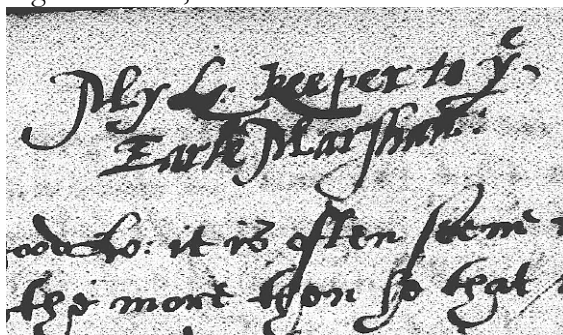 My L: keeper to yͤ
Earle Marshall:
Lo: it is often seene
the more then so that